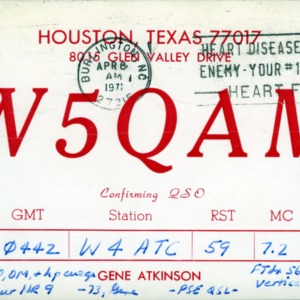 HOUSTON, TEXAS 77017
8015 GLEN VALLEY DRIVE
BURLINGTON, NC
APR 8
AM
1971
27215
HEART DISEASE
ENEMY-YOUR #1
HEART F
W5QAM
Confirming QSO
GMT Station RST MC
0442 W4ATC 59 7.2
GENE ATKINSON
-73, Gene -PSE QSL-